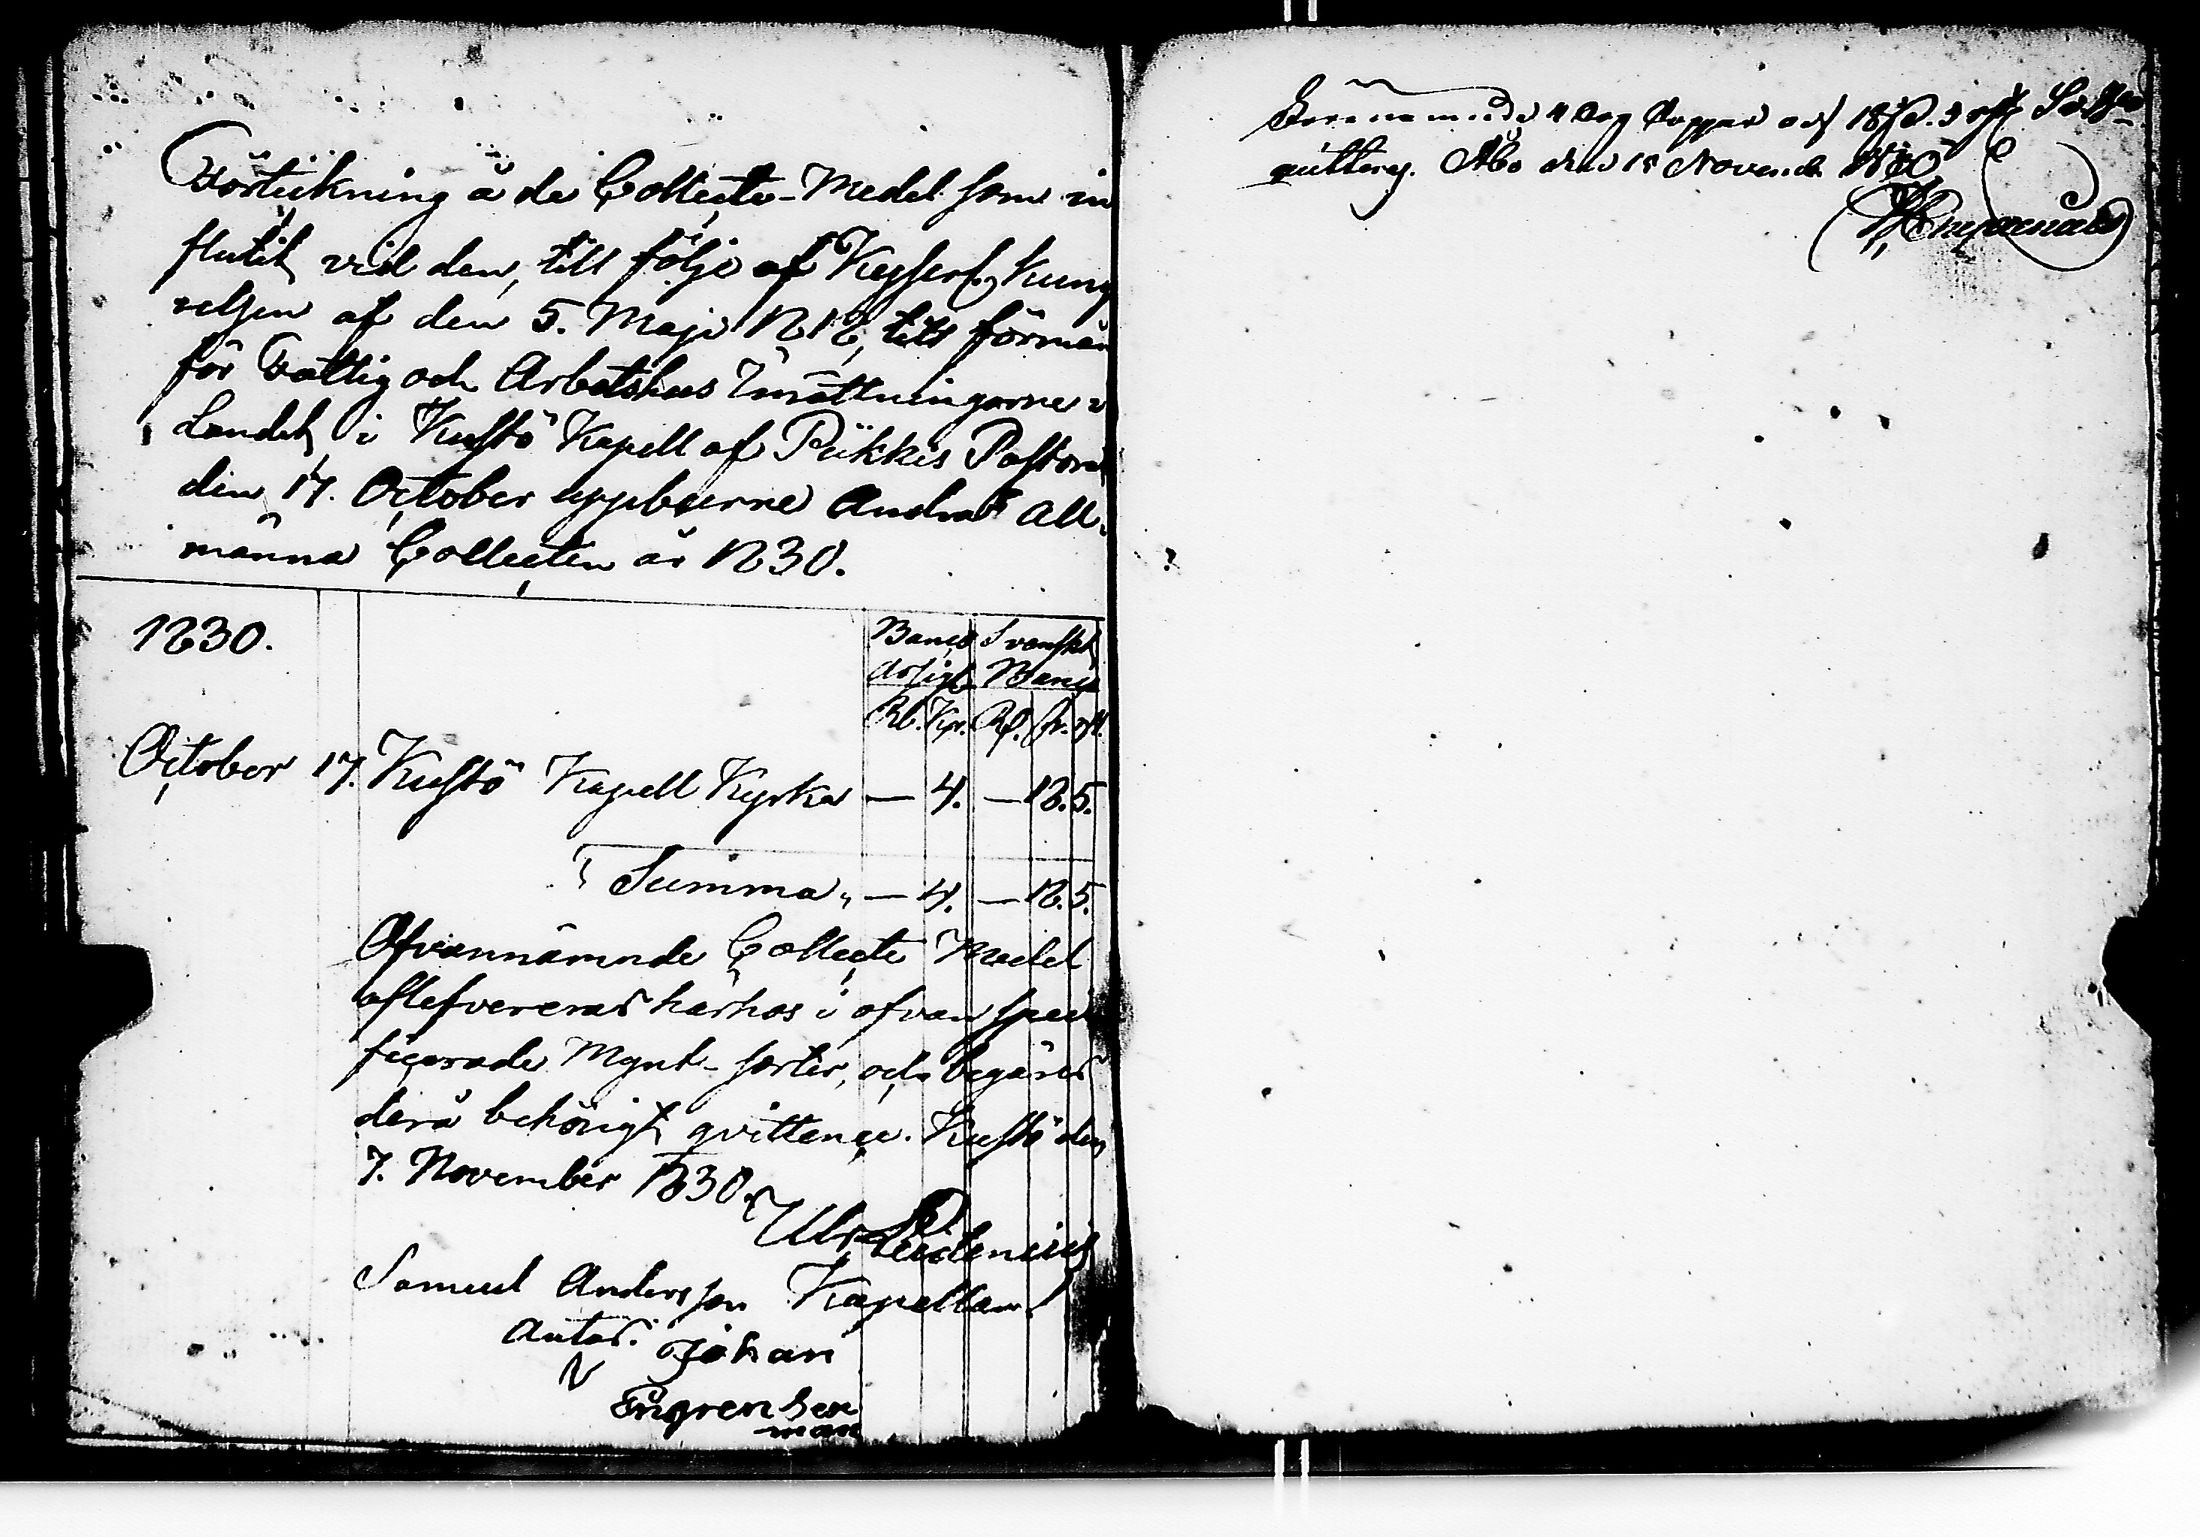 Förteckning å de Collecte-Medel som in
flutit vid den, till följe af Keyserl. Kung
relsen af den 5. Maji 1812, till förmån
för Fattig och Arbetshus Inrättningarne i
Landet, i Kustö Kapell af Pikkis Pastorat
den 17. October uppburne Andra All-
männa Collecten år 1830.
1830.
Banco Svenskt
Assigt. Banco
Rb. Kop. Rd. sk. rst.
October 17. Kustö Kapell Kyrka — 4. — 18. 5.
Summa, — 4. — 18. 5.
Ofvannämnde Collecte Medel
aflefvereras härhos i ofvan speci
ficerade Mynt-sorter, och begäres
derå behörigt qvittence. Kustö den
7. November 1830.
Kapellan.
Samuel Andersson
Johan
man
4 Cop Koppar och 18
Åbo den 15 Novemb. 1830